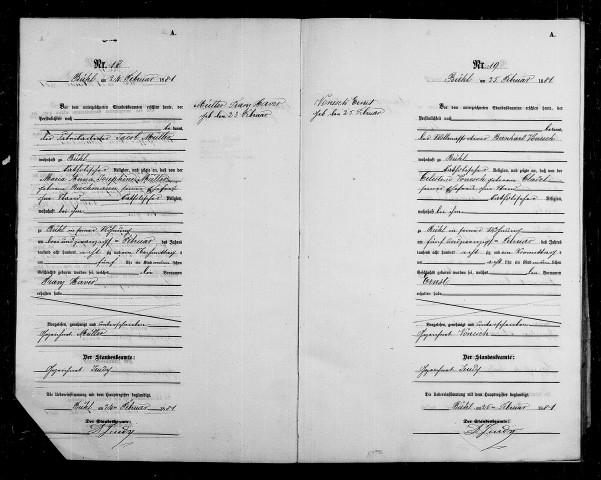 A.
Nr. 18
Bühl am 24 Februar 1881
Vor dem unterzeichneten Standesbeamten erschien heute, der
Persönlichkeit nach
bekannt,
der Fabrikarbeiter Jacob Müller
wohnhaft zu Bühl
katholischer Religion, und zeigte an, daß von der
Maria Anna Josephine Müller
geborene Bachmann seiner Ehefrau
katholischer Religion,
wohnhaft bei ihm
zu Bühl in seiner Wohnung
am drei und zwanzigsten Februar des Jahres
tausend acht hundert achtzig und ein Nachmittags
um fünf Uhr ein Kind männlichen
Geschlechts geboren worden sei, welches den Vornamen
Franz Xaver
erhalten habe
Vorgelesen, genehmigt und unterschrieben
Gezeichnet Müller
Der Standesbeamte:
Gezeichnet Judy
Die Uebereinstimmung mit dem Hauptregister beglaubigt
Bühl am 24 Februar 1881
Der Standesbeamte:
Judy
Müller Franz Xaver
geb den 23 Februar
A.
Nr. 19
Bühl am 25 Februar 1881
Vor dem unterzeichneten Standesbeamten erschien heute, der
Persönlichkeit nach
bekannt,
Bernhart Vonesch
wohnhaft zu Bühl
katholischer Religion, und zeigte an, daß von der
Celestine Vonesch geborene
seiner Ehefrau
katholischer Religion,
wohnhaft bei ihm
zu Bühl in seiner Wohnung
am fünf und zwanzigsten Februar des Jahres
tausend acht hundert achtzig und ein Vormittags
um acht Uhr ein Kind männlichen
Geschlechts geboren worden sei, welches den Vornamen
Ernst
erhalten habe
Vorgelesen, genehmigt und unterschrieben
Gezeichnet Vonesch
Der Standesbeamte:
Gezeichnet Judy
Die Uebereinstimmung mit dem Hauptregister beglaubigt
Bühl am 25 Februar 1881
Der Standesbeamte:
Judy
Vonesch Ernst
geb den 25 Februar